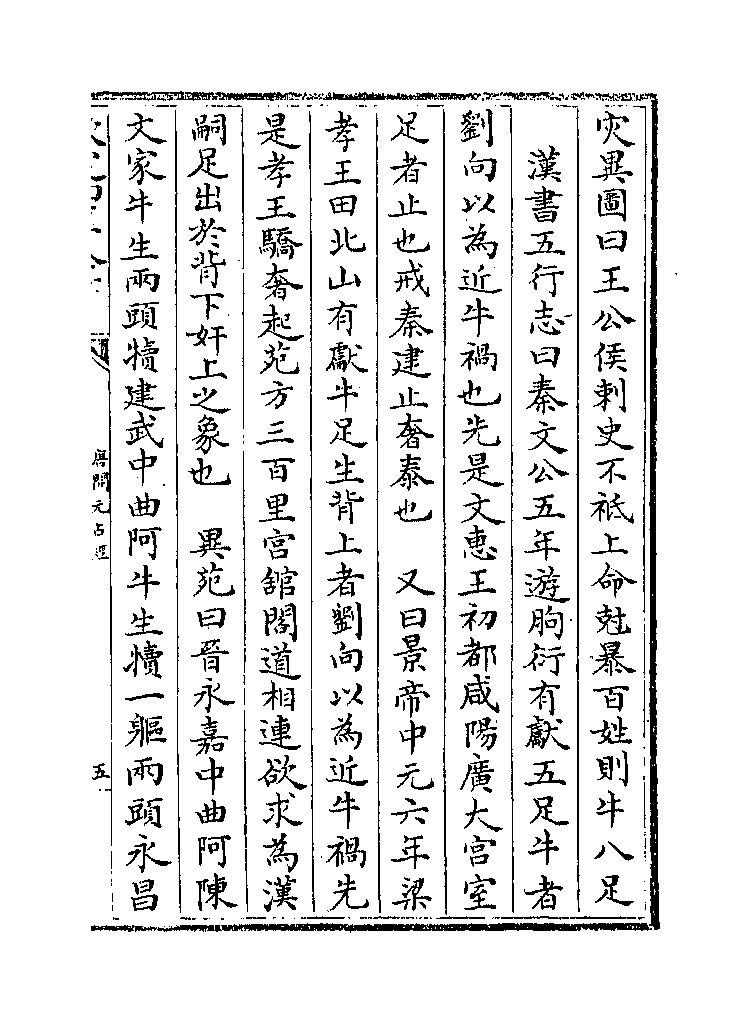 灾異圖曰王公侯刺史不祗上命尅暴百姓則牛八足
漢書五行志曰秦文公五年遊朐衍有獻五足牛者
劉向以為近牛禍也先是文惠王初都咸陽廣大宫室
足者止也戒秦建止奢泰也　又曰景帝中元六年梁
孝王田北山有獻牛足生背上者劉向以為近牛禍先
是孝王驕奢起苑方三百里宫舘閣道相連欲求為漢
嗣足出於背下奸上之象也　異苑曰晉永嘉中曲阿陳
文家牛生兩頭犢建武中曲阿牛生犢一軀兩頭永昌
唐開元占經
五